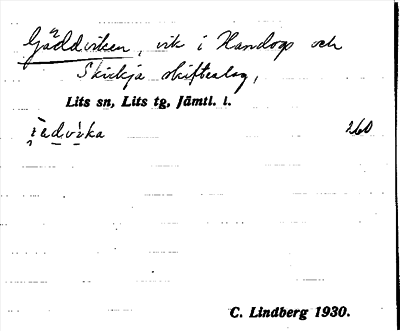 Gäddviken, vik i Handogs och
Skickja skifteslag,
Lits sn, Lits tg, Jämtl. l.
260
C. Lindberg 1930.